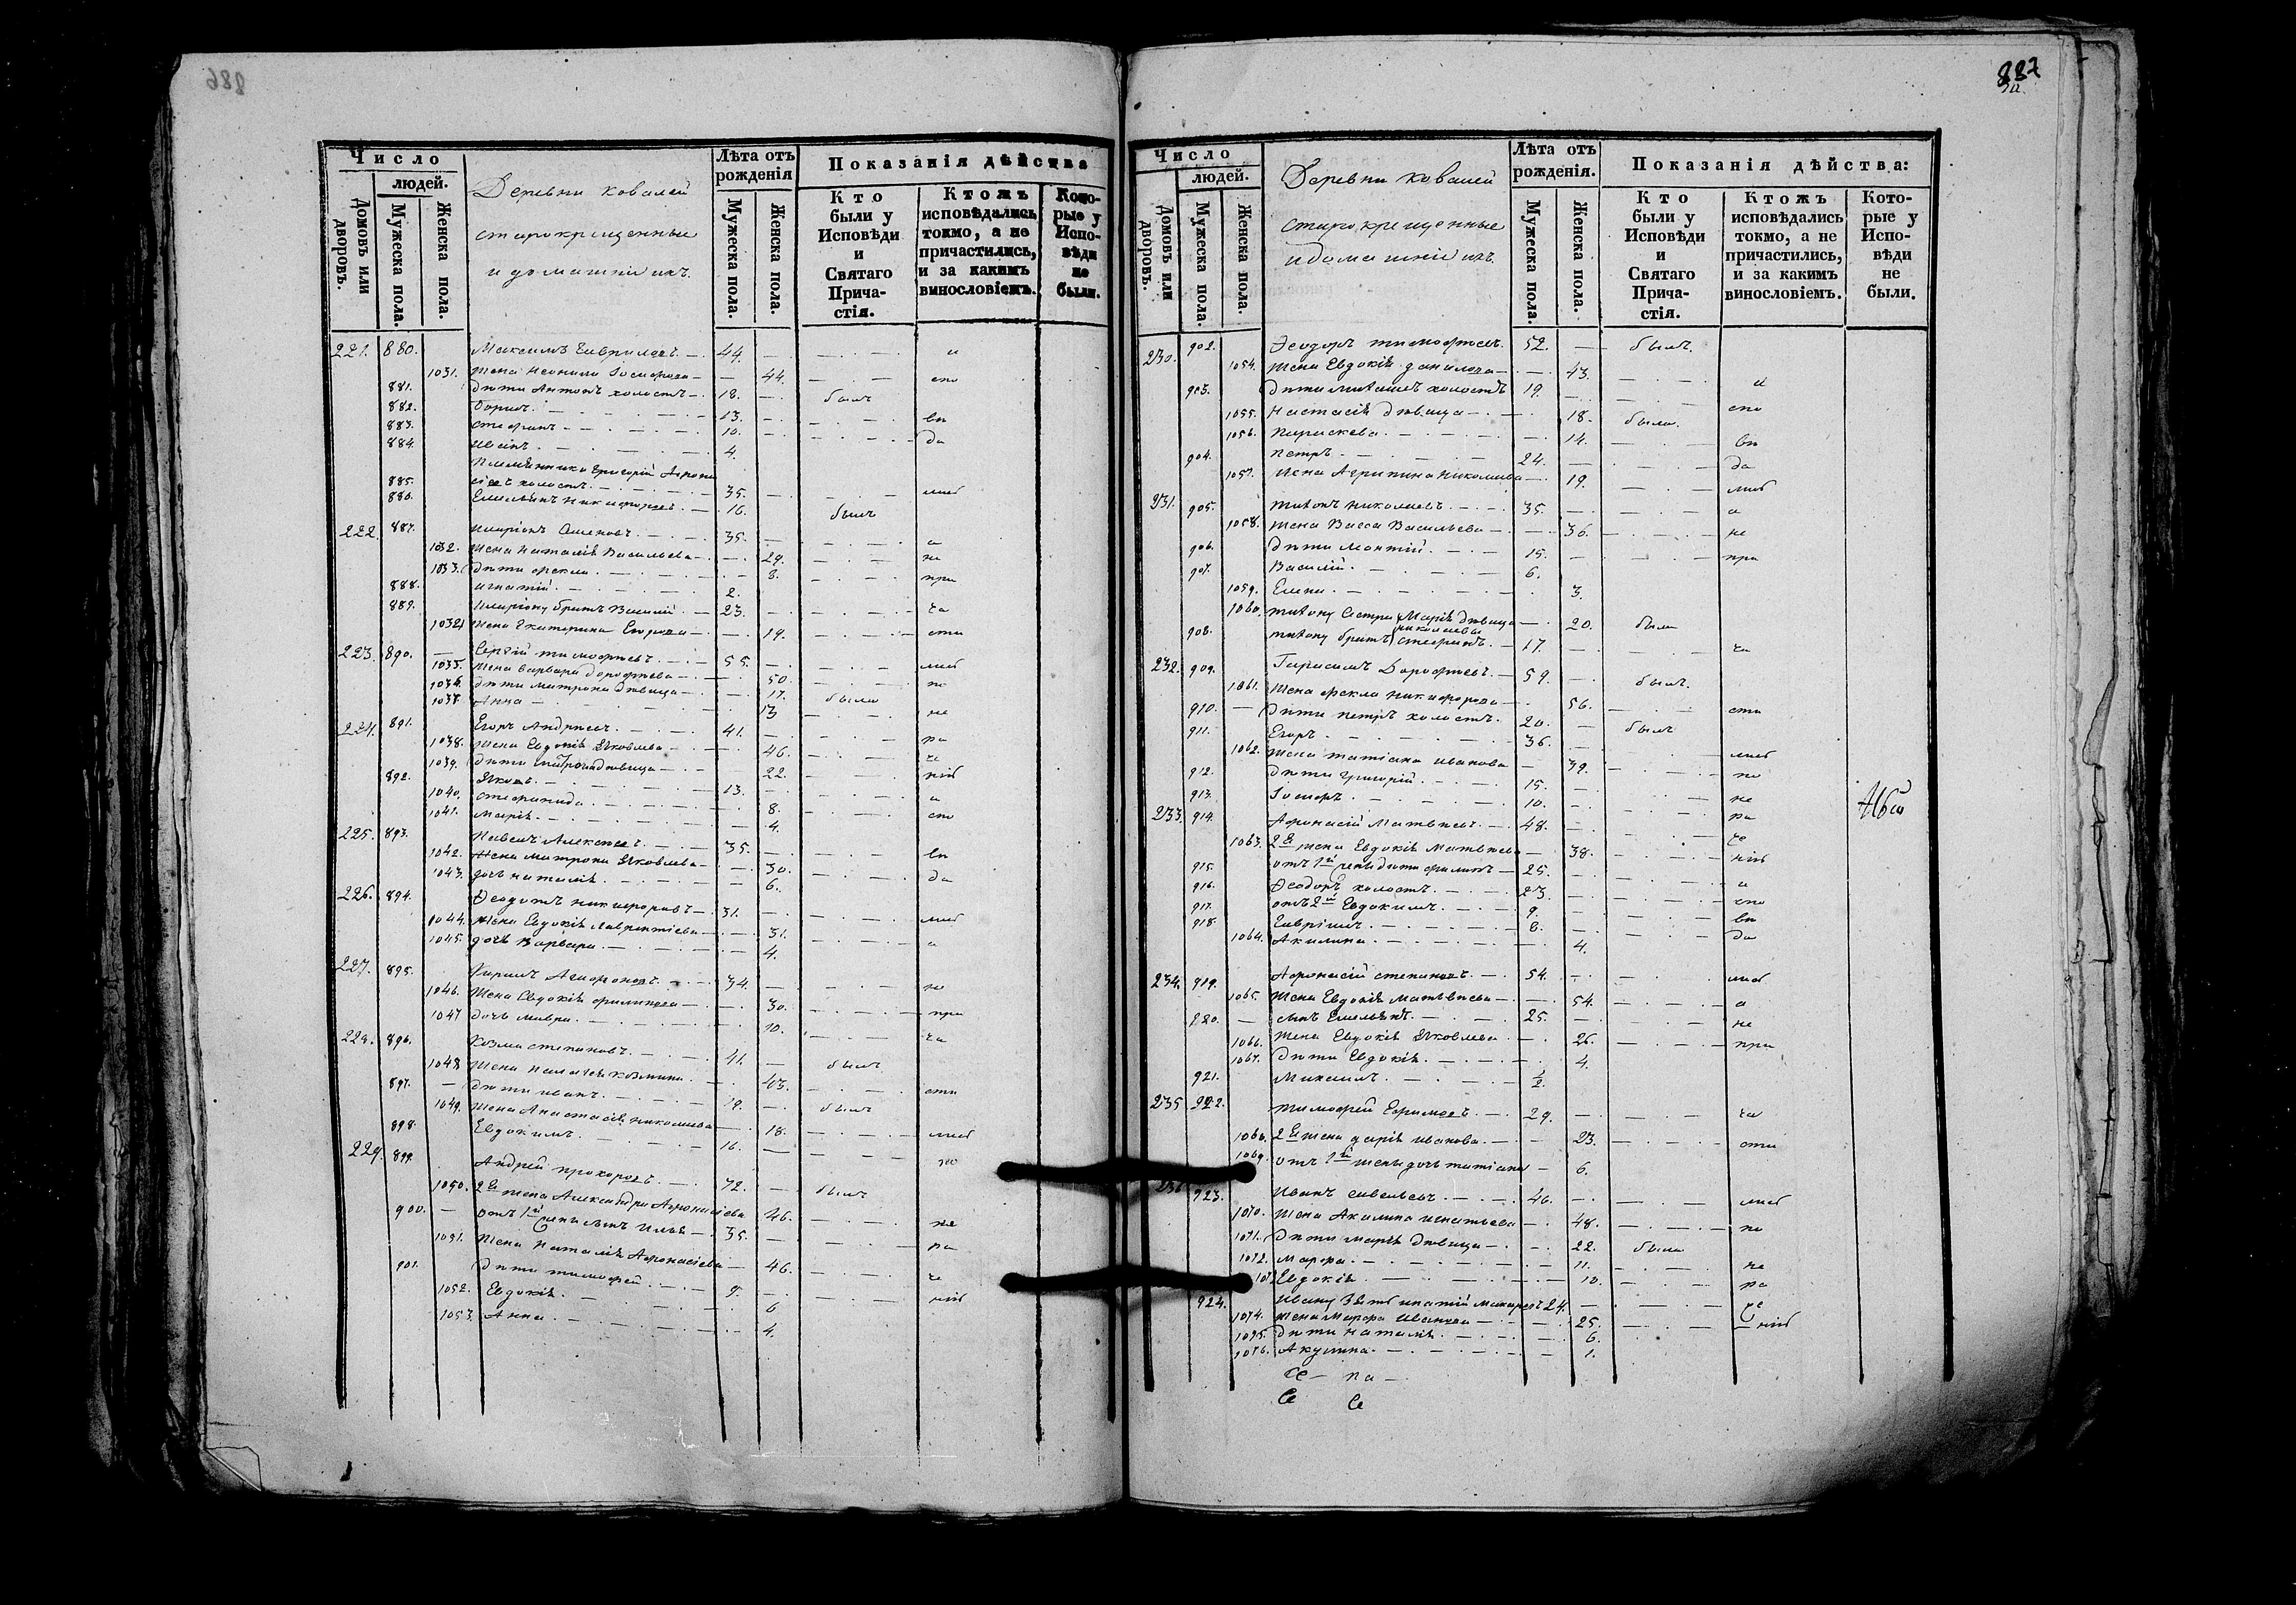 986
Число
людей.
Домовъ или дворовъ.
Мужеска пола.
Женска пола.
Деревни Ковалей
старокрещенные
и домашніи ихъ.
Лѣта отъ рожденія
Мужеска пола.
Женска пола.
Показанія дѣйства
Кто были у Исповѣди и Святаго Причастія.
Ктожъ исповѣдались токмо, а не причастились, и за какимъ винословіемъ.
Которые у Исповѣди не были.
221. 880. Максимъ Гавриловъ 44. и
1031. Жена Неонила 44. спо
881. Дѣти Антонъ холостъ 18. былъ
882. Борисъ 13. вѣ
883. Стефанъ 10. да
884. 4.
Племянники Григорій
885. холостъ 35. лись
886. Емельянъ Никифоровъ 16. былъ
222. 887. Иларіонъ Семеновъ 35. а
1032. Жена Наталія Васильева 29. не
1033. Дѣти Фекла 8. при
888. Игнатій 2.
889. Иларіону братъ Василій 23. ча
1034. Жена Екатерина Егорова 19. сти
223. 890. Сергій Тимофѣевъ 55. лись
1035. Жена Варвара Дорофѣева 50. по
1036. Дѣти Матрона дѣвица 17. была
1037. Анна 13 не
224. 891. Егоръ Андреевъ 41. ра
1038. Жена Евдокія Яковлева 46. че
1039. Дѣти Матрона дѣвица 22. нію
892. Яковъ 13. и
1040. Стефанида 8. спо
1041. Марія 4.
225. 893. Павелъ Алексѣевъ 35. вѣ
1042. Жена Матрона Яковлева 30. да
1043. дочь Наталія 6.
226. 894. Ѳеодотъ Никифоровъ 31. лись
1044. Жена Евдокія Лаврентіева 31. а
1045. дочь Варвара 4.
227. 895. Кирилъ 34. не
1046. Жена Евдокія Филипова 30. при
1047 дочь Мавра 10. ча
228. 896. Козма Степановъ 41. былъ
1048 Жена Пелагея Козмина 43. сти
897. Дѣти Иванъ 19. былъ
1049. Жена Анастасія Николаева 18. лись
898. Евдокимъ 16. по
229. 899. Андрей Прохоровъ 72. былъ
1050. 2я жена Александра Афонасіева 46. не
900. отъ 1й жены сынъ Илья 35. ра
1051. Жена Наталія Афонасіева 46. че
901. Дѣти Тимофей 9. нію
1052. Евдокія 6
1053. Анна 4.
887
Число
людей.
Домовъ или дворовъ.
Мужеска пола.
Женска пола.
Деревни Ковалей
старокрещенные
и домашніи ихъ.
Лѣта отъ рожденія.
Мужеска пола.
Женска пола.
Показанія дѣйства:
Кто были у Исповѣди и Святаго Причастія.
Ктожъ исповѣдались токмо, а не причастились, и за какимъ винословіемъ.
Которые у Исповѣди не были.
230. 902. Ѳеодоръ Тимофѣевъ 52. былъ.
1054. Жена Евдокія Данилова 43. и
903. Дѣти холостъ 19. спо
1055. Настасія дѣвица 18. была.
1056. Параскева 14. вѣ
904. Петръ 24. да
1057. Жена Агрипина Николаева 19. лись
231. 905. Титонъ Николаевъ 35. а
1058. Жена Васса Васильева 36. не
906. Дѣти 15. при
907. Василій 6.
1059. Елена 3.
1060. сестра Марія дѣвица 20. была
николаевы
908. братъ Стефанъ 17. ча
232. 909. Гарасимъ Дорофѣевъ 59. былъ.
1061. Жена Фекла Никифорова 56. сти
910. Дѣти Петръ холостъ 20. былъ
911. Егоръ 36. лись
1062. Жена Татіана Иванова 39. по
912. Дѣти Григорій 15. не
913. 10. ра
233. 914. Афонасій Матвѣевъ 48. че
1063. 2я жена Евдокія Матвѣева 38. нію
915. отъ 1й жены дѣти Филипъ 25. и
916. Ѳеодоръ холостъ 23. спо
917. отъ 2й Евдокимъ 9. вѣ
918. Гаврілъ 8. да
1064. Акилина 4.
234. 919. Афонасій Степановъ 54. лись
1065. Жена Евдокія Матвѣева 54. а
920. сынъ Емельянъ 25. не
1066. Жена Евдокія Яковлева 26. при
1067. Дѣти Евдокія 4.
921. Максимъ 1/2.
235 922. Тимофей Ефимовъ 29. ча
1068. 2я жена Дарія Иванова 23. сти
1069. отъ 1й жены дочь Татіана 6.
236 923. Иванъ Савельевъ 46. лись
1070. Жена Акилина Игнатьева 48. по
1071. Дѣти Марія дѣвица 22. была
1072. Марфа 11. не
107 Евдокія 10. ра
924. Ивану зять 24. че
1074. Жена Марфа Иванова 25. нію
1075. Дѣти Наталія 6.
1076. Акулина 1.